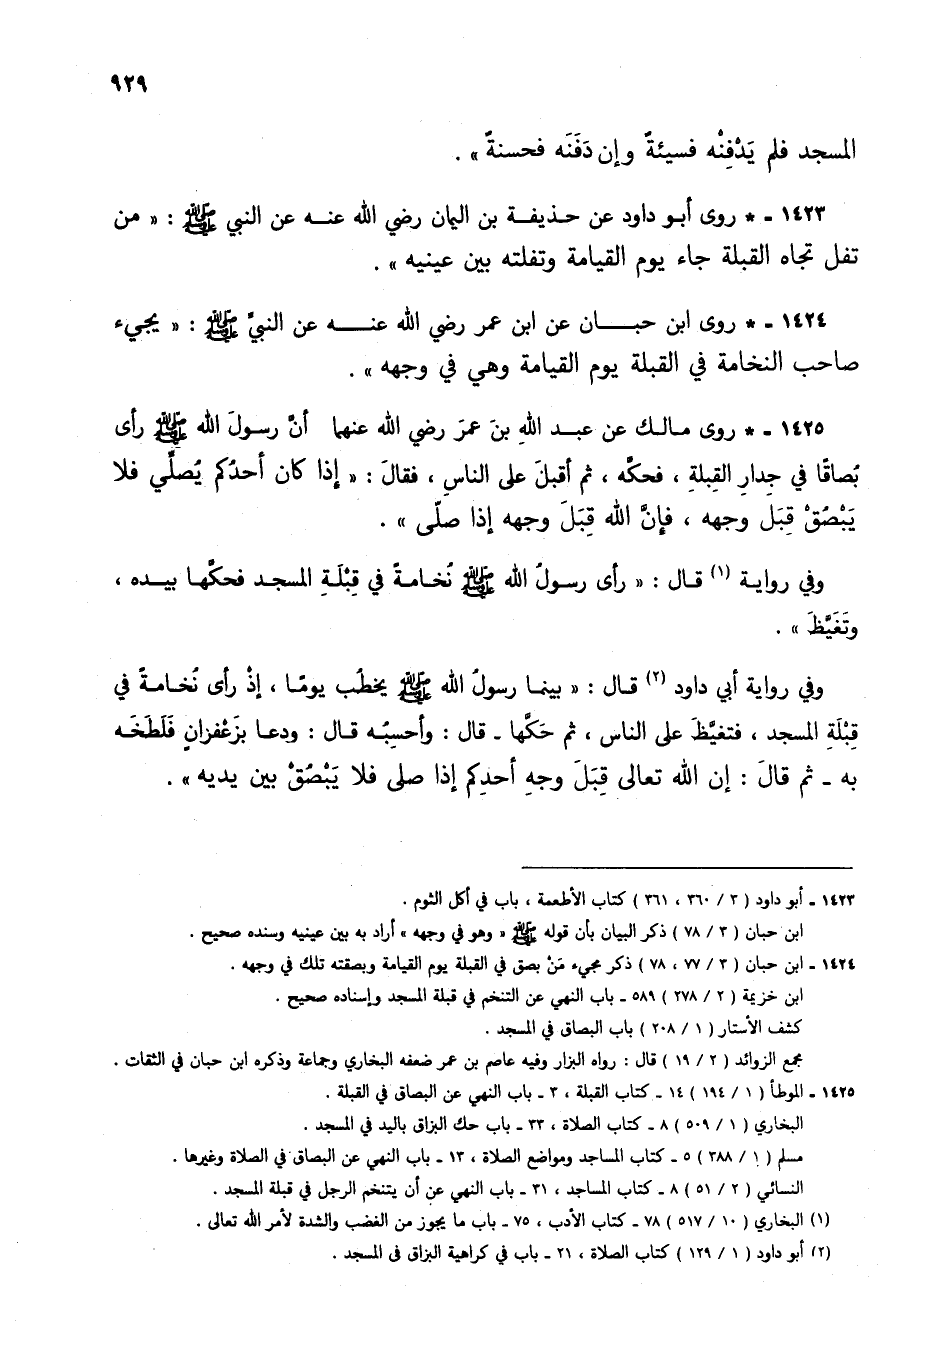 ٩٢٩
المسجد فلم يَدْفِنْه فسيئةً وإن دَفَنَه فحسنةً » .
١٤٢٣ - * روى أبو داود عن حذيفة بن اليمان رضي الله عنه عن النبي ﷺ : « من
تفل تجاه القبلة جاء يوم القيامة وتفلته بين عينيه » .
١٤٢٤ - * روى ابن حبان عن ابن عمر رضي الله عنه عن النبيِّ ﷺ : « يجيء
صاحب النخامة في القبلة يوم القيامة وهي في وجهه » .
١٤٢٥ - * روى مالك عن عبد اللهِ بنَ عمرَ رضي الله عنهما أنَّ رسولَ الله ﷺ رأى
بُصاقًا في جِدارِ القِبلةِ ، فحكَّه ، ثم أقبلَ على الناسِ ، فقالَ : « إذا كان أحدُكم يُصلِّي فلا
يَبْصُقْ قِبَل وجهه ، فإنَّ الله قِبَلَ وجهه إذا صلّى » .
وفي رواية (١) قال : « رأى رسولُ الله ﷺ نُخامةً في قِبْلَةِ المسجد فحكَّها بيده ،
وتَغَيَّظَ » .
وفي رواية أبي داود (٢) قال : « بينما رسولُ الله ﷺ يخطُب يومًا ، إذْ رأى نُخامةً في
قِبْلَةِ المسجد ، فتغيَّظَ على الناس ، ثم حَكَّها - قال : وأحسِبُه قال : ودعا بزَعْفرانٍ فَلَطَخَه
به - ثم قالَ : إن الله تعالى قِبَلَ وجهِ أحدِكم إذا صلى فلا يَبْصُقْ بين يديه » .
١٤٢٣ - أبو داود ( ٣ / ٣٦٠ ، ٣٦١ ) كتاب الأطعمة ، باب في أكل الثوم .
ابن حبان ( ٣ / ٧٨ ) ذكر البيان بأن قوله ﷺ « وهو في وجهه » أراد به بين عينيه وسنده صحيح .
١٤٢٤ - ابن حبان ( ٣ / ٧٧ ، ٧٨ ) ذكر مجيء مَنْ بصق في القبلة يوم القيامة وبصقته تلك في وجهه .
ابن خزيمة ( ٢ / ٢٧٨ ) ٥٨٩ - باب النهي عن التنخم في قبلة المسجد وإسناده صحيح .
كشف الأستار ( ١ / ٢٠٨ ) باب البصاق في المسجد .
مجمع الزوائد ( ٢ / ١٩ ) قال : رواه البزار وفيه عاصم بن عمر ضعفه البخاري وجماعة وذكره ابن حبان في الثقات .
١٤٢٥ - الموطأ ( ١ / ١٩٤ ) ١٤ - كتاب القبلة ، ٣ - باب النهي عن البصاق في القبلة .
البخاري ( ١ / ٥٠٩ ) ٨ - كتاب الصلاة ، ٣٣ - باب حك البزاق باليد في المسجد .
مسلم ( ١ / ٣٨٨ ) ٥ - كتاب المساجد ومواضع الصلاة ، ١٣ - باب النهي عن البصاق في الصلاة وغيرها .
النسائي ( ٢ / ٥١ ) ٨ - كتاب المساجد ، ٣١ - باب النهي عن أن يتنخم الرجل في قبلة المسجد .
(١) البخاري ( ١٠ / ٥١٧ ) ٧٨ - كتاب الأدب ، ٧٥ - باب ما يجوز من الغضب والشدة لأمر الله تعالى .
(٢) أبو داود ( ١ / ١٢٩ ) كتاب الصلاة ، ٢١ - باب في كراهية البزاق في المسجد .